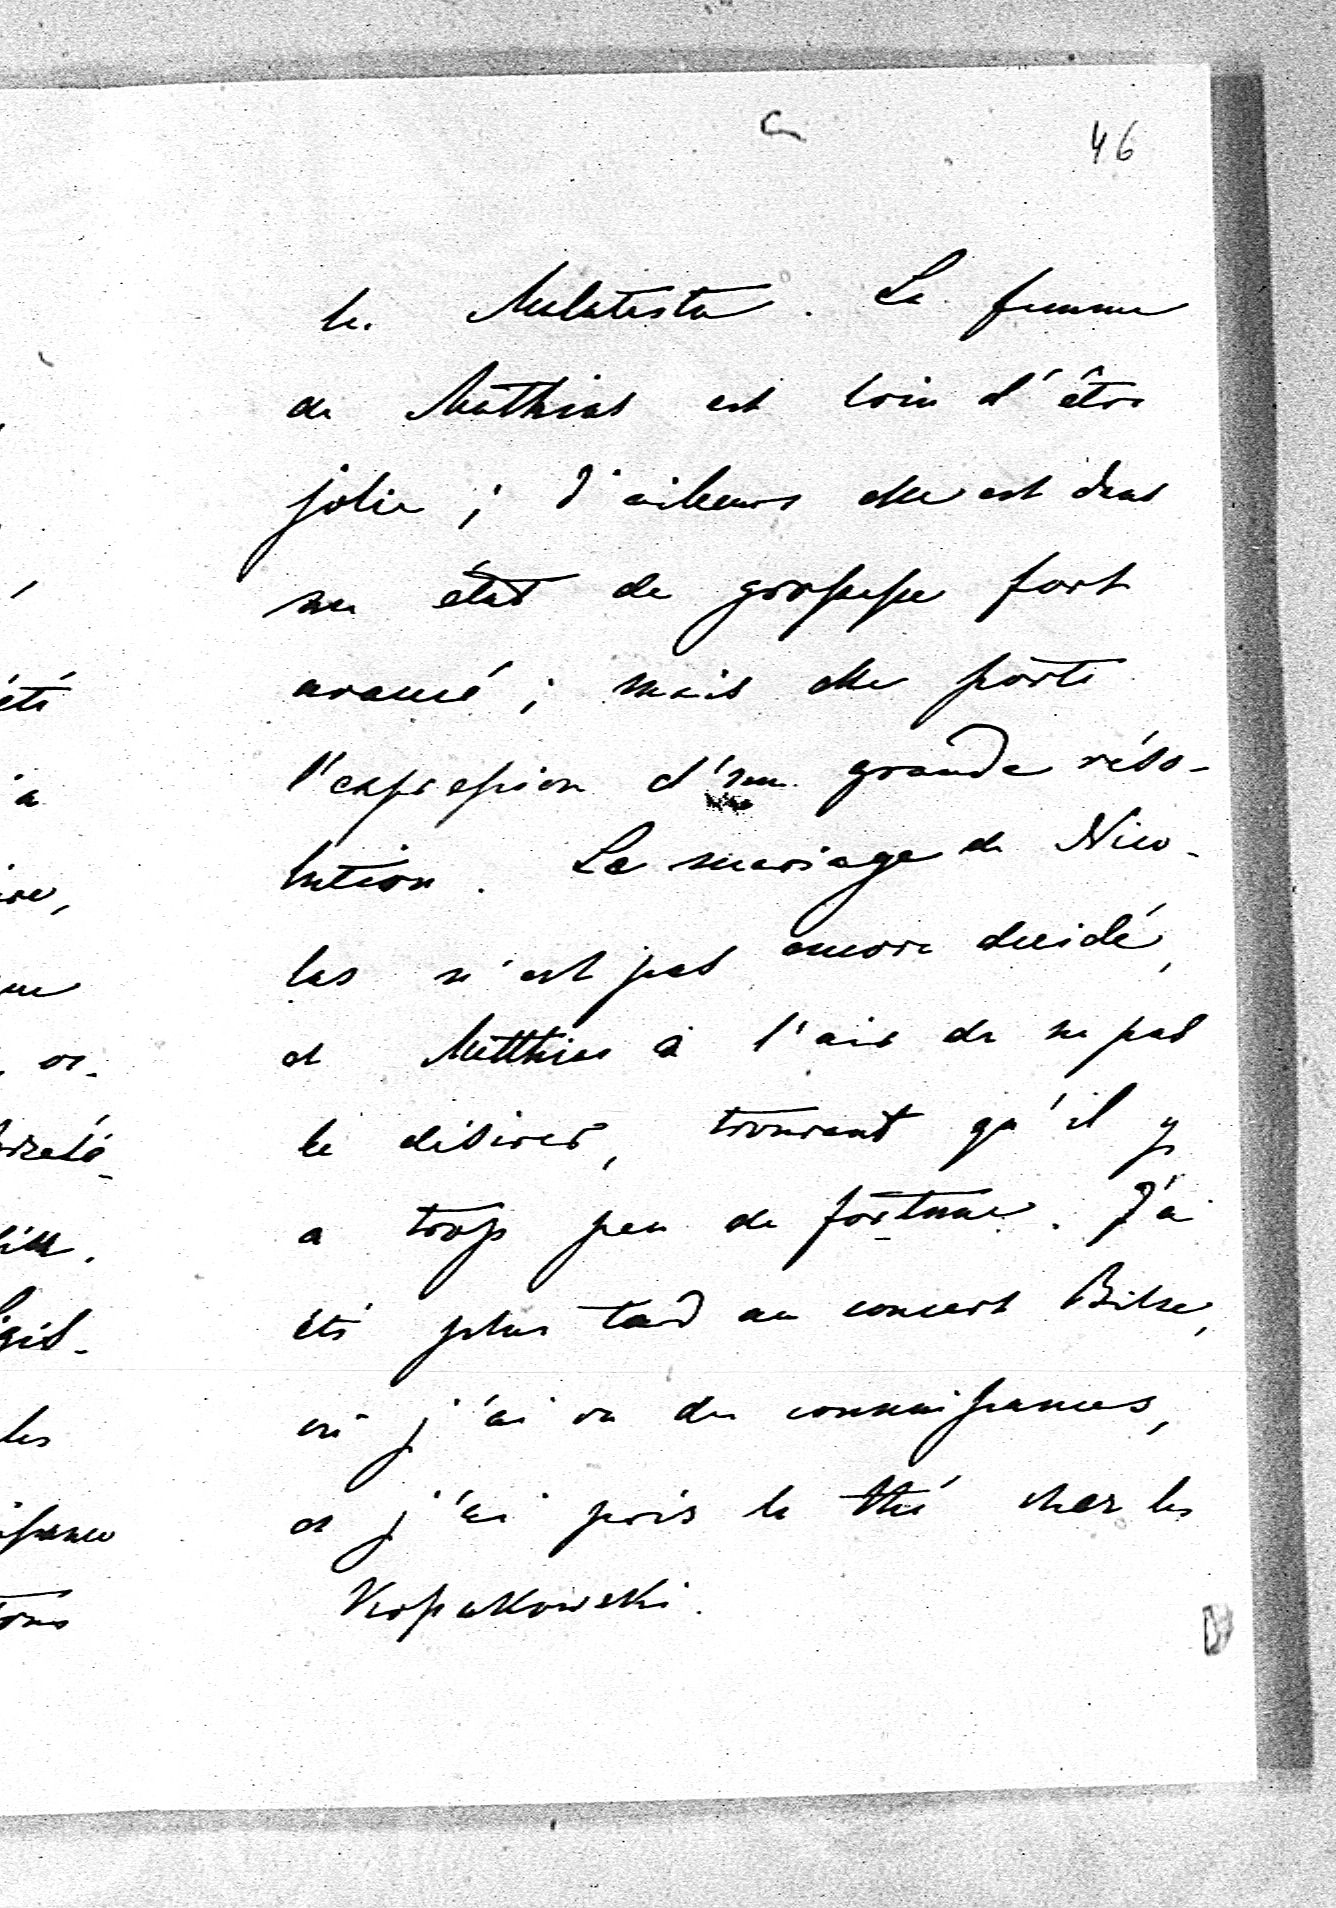 46
les Malatesta. La femme
de Mathias est loin d'être
jolie; d'ailleurs elle est dans
un état de grossesse fort
avancé; mais elle porte
l'expression d'une grande réso-
lution. Le mariage de Nico-
las n'est pas encore decidé,
et Matthias à l'air de ne pas
le désirer, trouvant qu'il y
a trop peu de fortune. J'ai
été plus tard au concert Bilse,
où j'ai vu des connaissances,
et j'ai pris le thé chez les